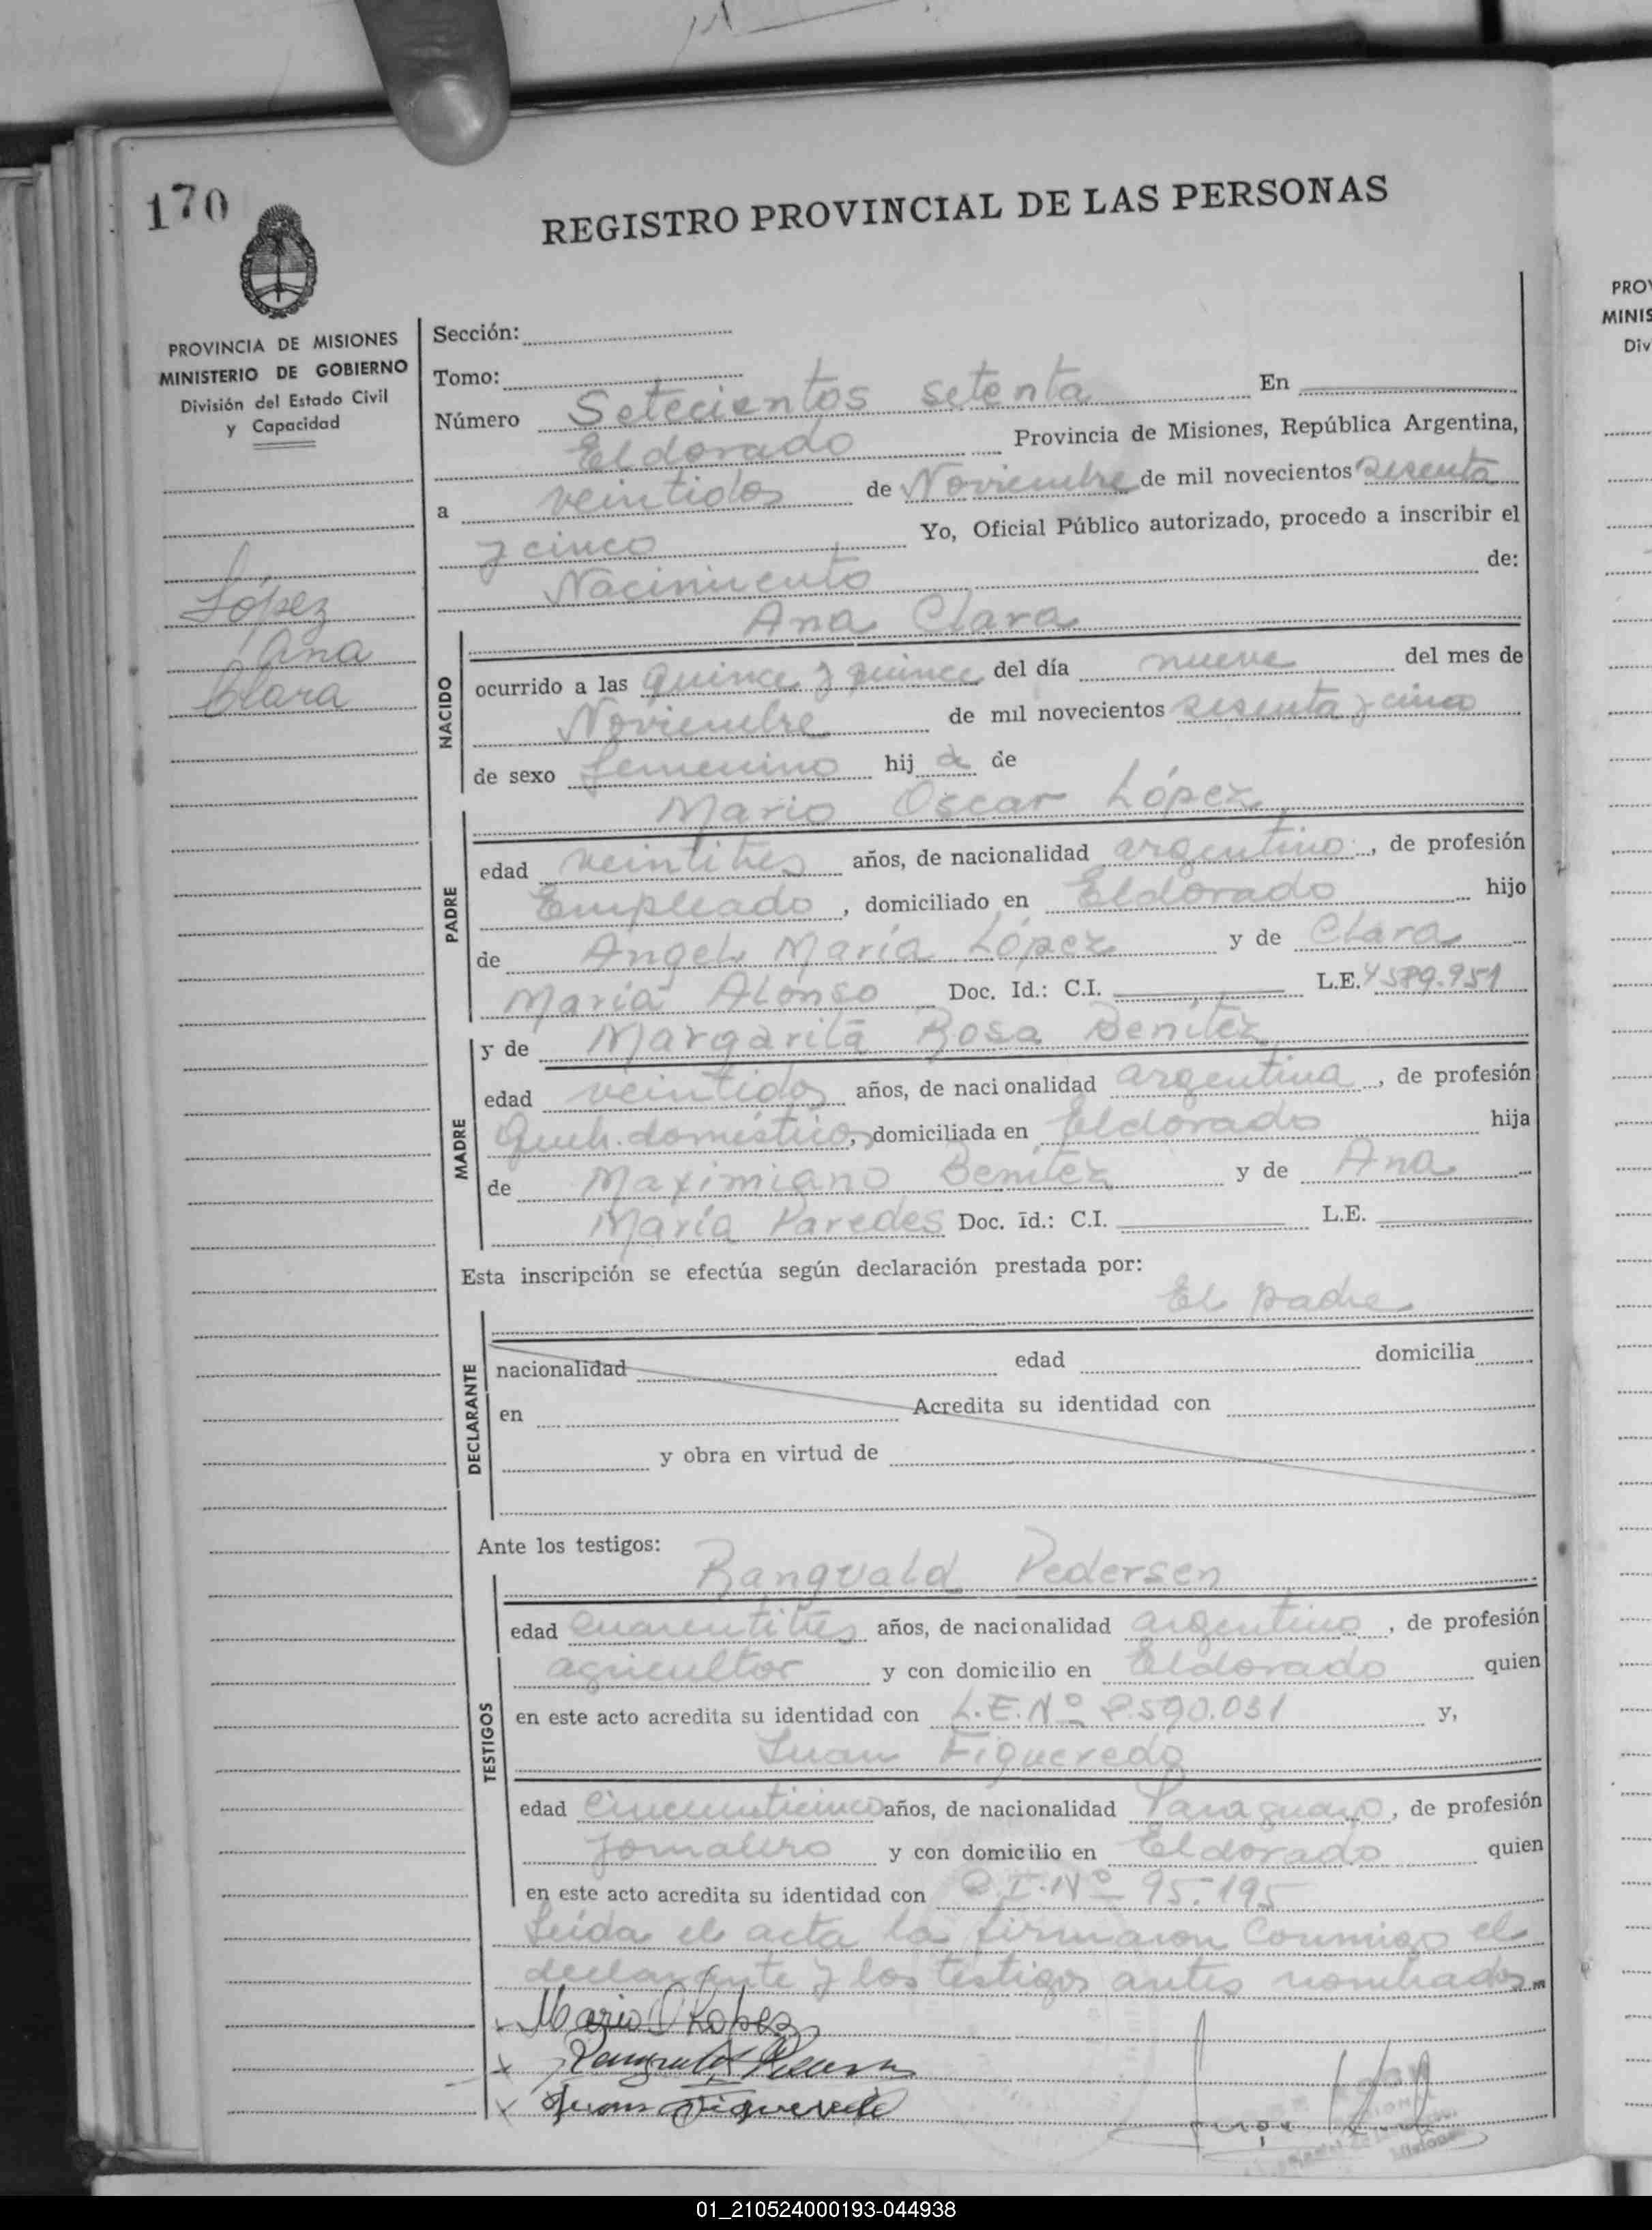 170
REGISTRO PROVINCIAL DE LAS PERSONAS
PROVINCIA DE MISIONES
MINISTERIO DE GOBIERNO
División del Estado Civil
y Capacidad
López
Ana
Clara
Sección:
Tomo:
Número Setecientos setenta En
Eldorado Provincia de Misiones, República Argentina,
a veintidos de Noviembre de mil novecientos sesenta
y cinco Yo, Oficial Público autorizado, procedo a inscribir el
Nacimiento de:
Ana Clara
NACIDO
ocurrido a las quince y quince del día nueve del mes de
Noviembre de mil novecientos sesenta y cinco
de sexo femenino hij a de
Mario Oscar López,
PADRE
edad veintitres años, de nacionalidad argentino, de profesión
Empleado, domiciliado en Eldorado hijo
de Angel María López y de Clara
María Alonso Doc. Id.: C.I. L.E. 4589.951
MADRE
y de Margarita Rosa Benítez,
edad veintidos años, de nacionalidad argentina, de profesión
Queh. domésticos, domiciliada en Eldorado hija
de Maximiano Benítez y de Ana
María Paredes Doc. Id.: C.I. L.E.
Esta inscripción se efectúa según declaración prestada por:
El padre
DECLARANTE
nacionalidad edad domicilia
en Acredita su identidad con
y obra en virtud de
Ante los testigos:
Rangvald Pedersen
TESTIGOS
edad cuarentitres años, de nacionalidad argentino, de profesión
agricultor y con domicilio en Eldorado quien
en este acto acredita su identidad con L.E.Nº 8.590.031 y,
Juan Figueredo
edad cincuenticinco años, de nacionalidad Paraguayo, de profesión
Jornalero y con domicilio en Eldorado quien
en este acto acredita su identidad con C.I.Nº 95.195
Leída el acta la firmaron conmigo el
declarante y los testigos antes nombrados.
Mario O Lopez
Rangvald Pedersen
Juan Figueredo
PROV
MINIS
Div
01_210524000193-044938